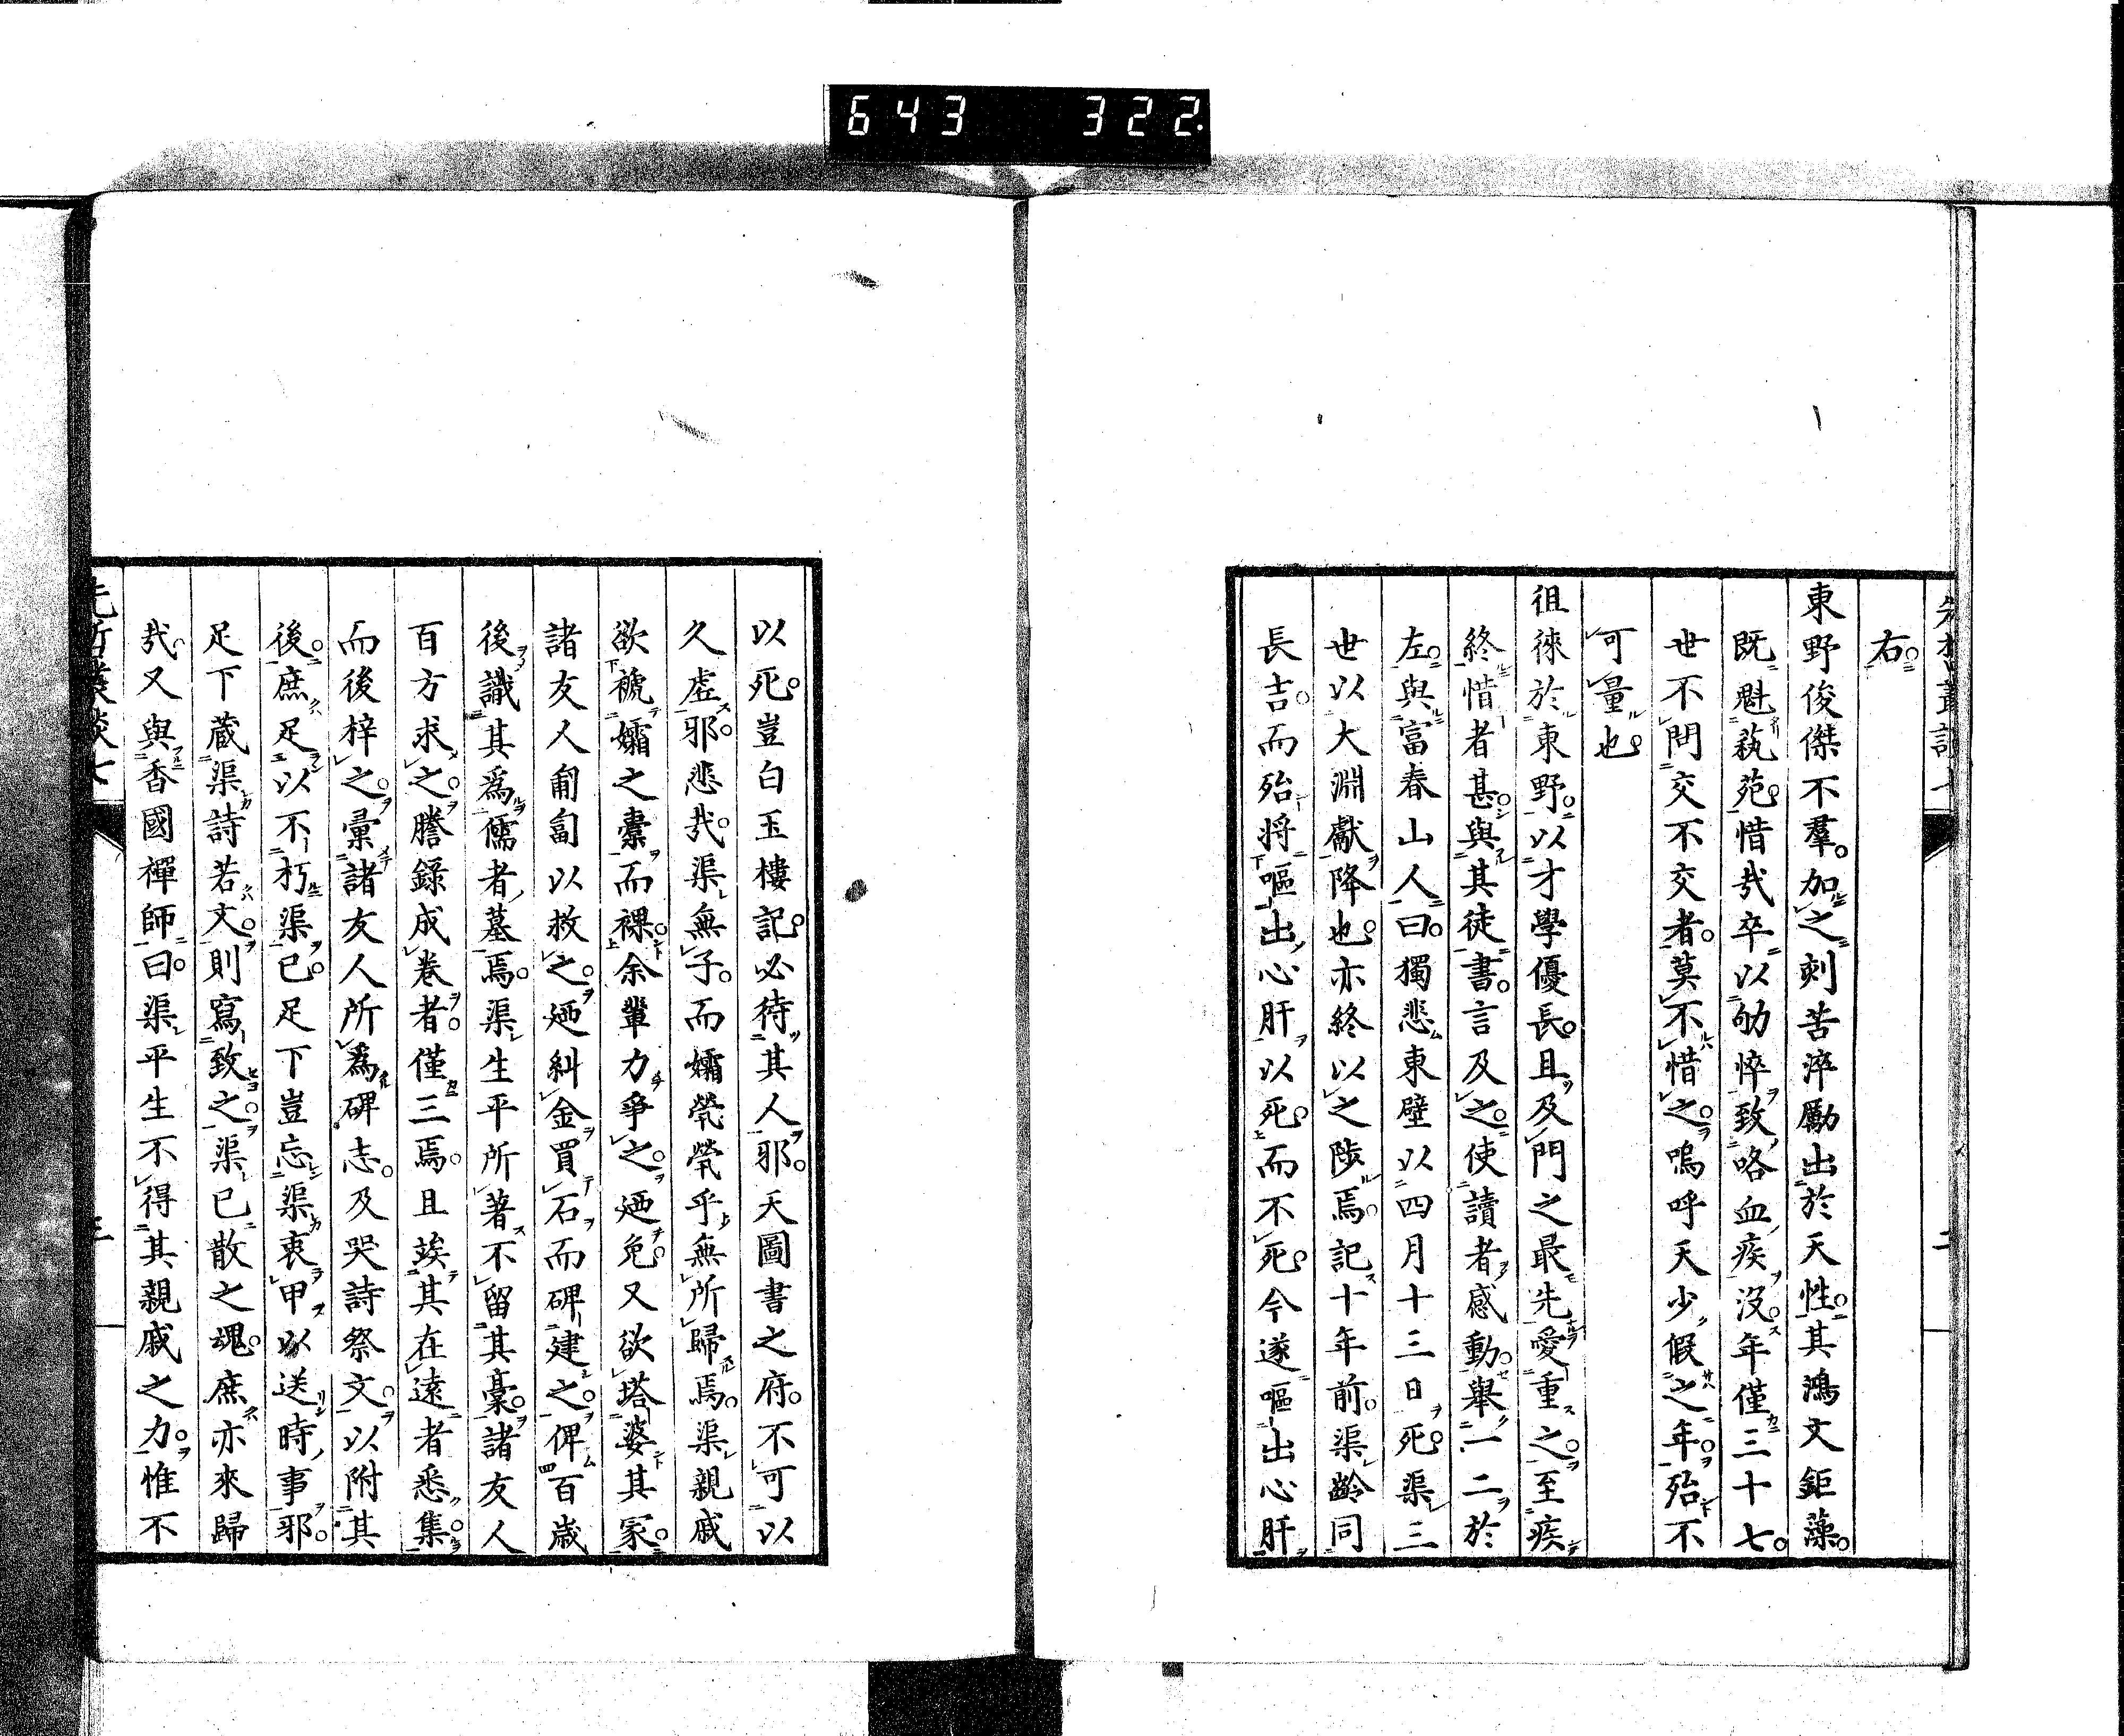 643 322
右。
東野俊傑不羣。加之刻苦淬勵出於天性。其鴻文鉅藻。
既魁蓺苑。惜哉卒以劬悴致咯血疾沒。年僅三十七。
世不問交不交者。莫不惜之。嗚呼天少假之年。殆不
可量也。
徂徠於東野。以才學優長。且及門之最先愛重之。至疾
終惜者甚。與其徒書。言及之。使讀者感動。舉一二於
左。與富春山人曰。獨悲東壁以四月十三日死。渠三
世以大淵獻降也。亦終以之陟焉。記十年前。渠齡同
長吉。而殆將嘔出心肝以死。而不死。今遂嘔出心肝
以死。豈白玉樓記。必待其人邪。天圖書之府。不可以
久虛邪。悲哉。渠無子。而孀煢煢乎無所歸焉。渠親戚
欲褫孀之橐而裸。余輩力爭之。迺免。又欲塔婆其冢。
諸友人匍匐以救之。迺糾金買石而碑建之。俾百歲
後識其爲儒者墓焉。渠生平所著不留其稾。諸友人
百方求之。謄錄成卷者。僅三焉。且竢其在遠者悉集。
而後梓之。彙諸友人所爲碑志。及哭詩祭文。以附其
後。庶足以不朽渠已。足下豈忘渠衷甲以送時事邪。
足下藏渠詩若文。則寫致之。渠已散之魂。庶亦來歸
哉。又與香國禪師曰。渠平生不得其親戚之力。惟不